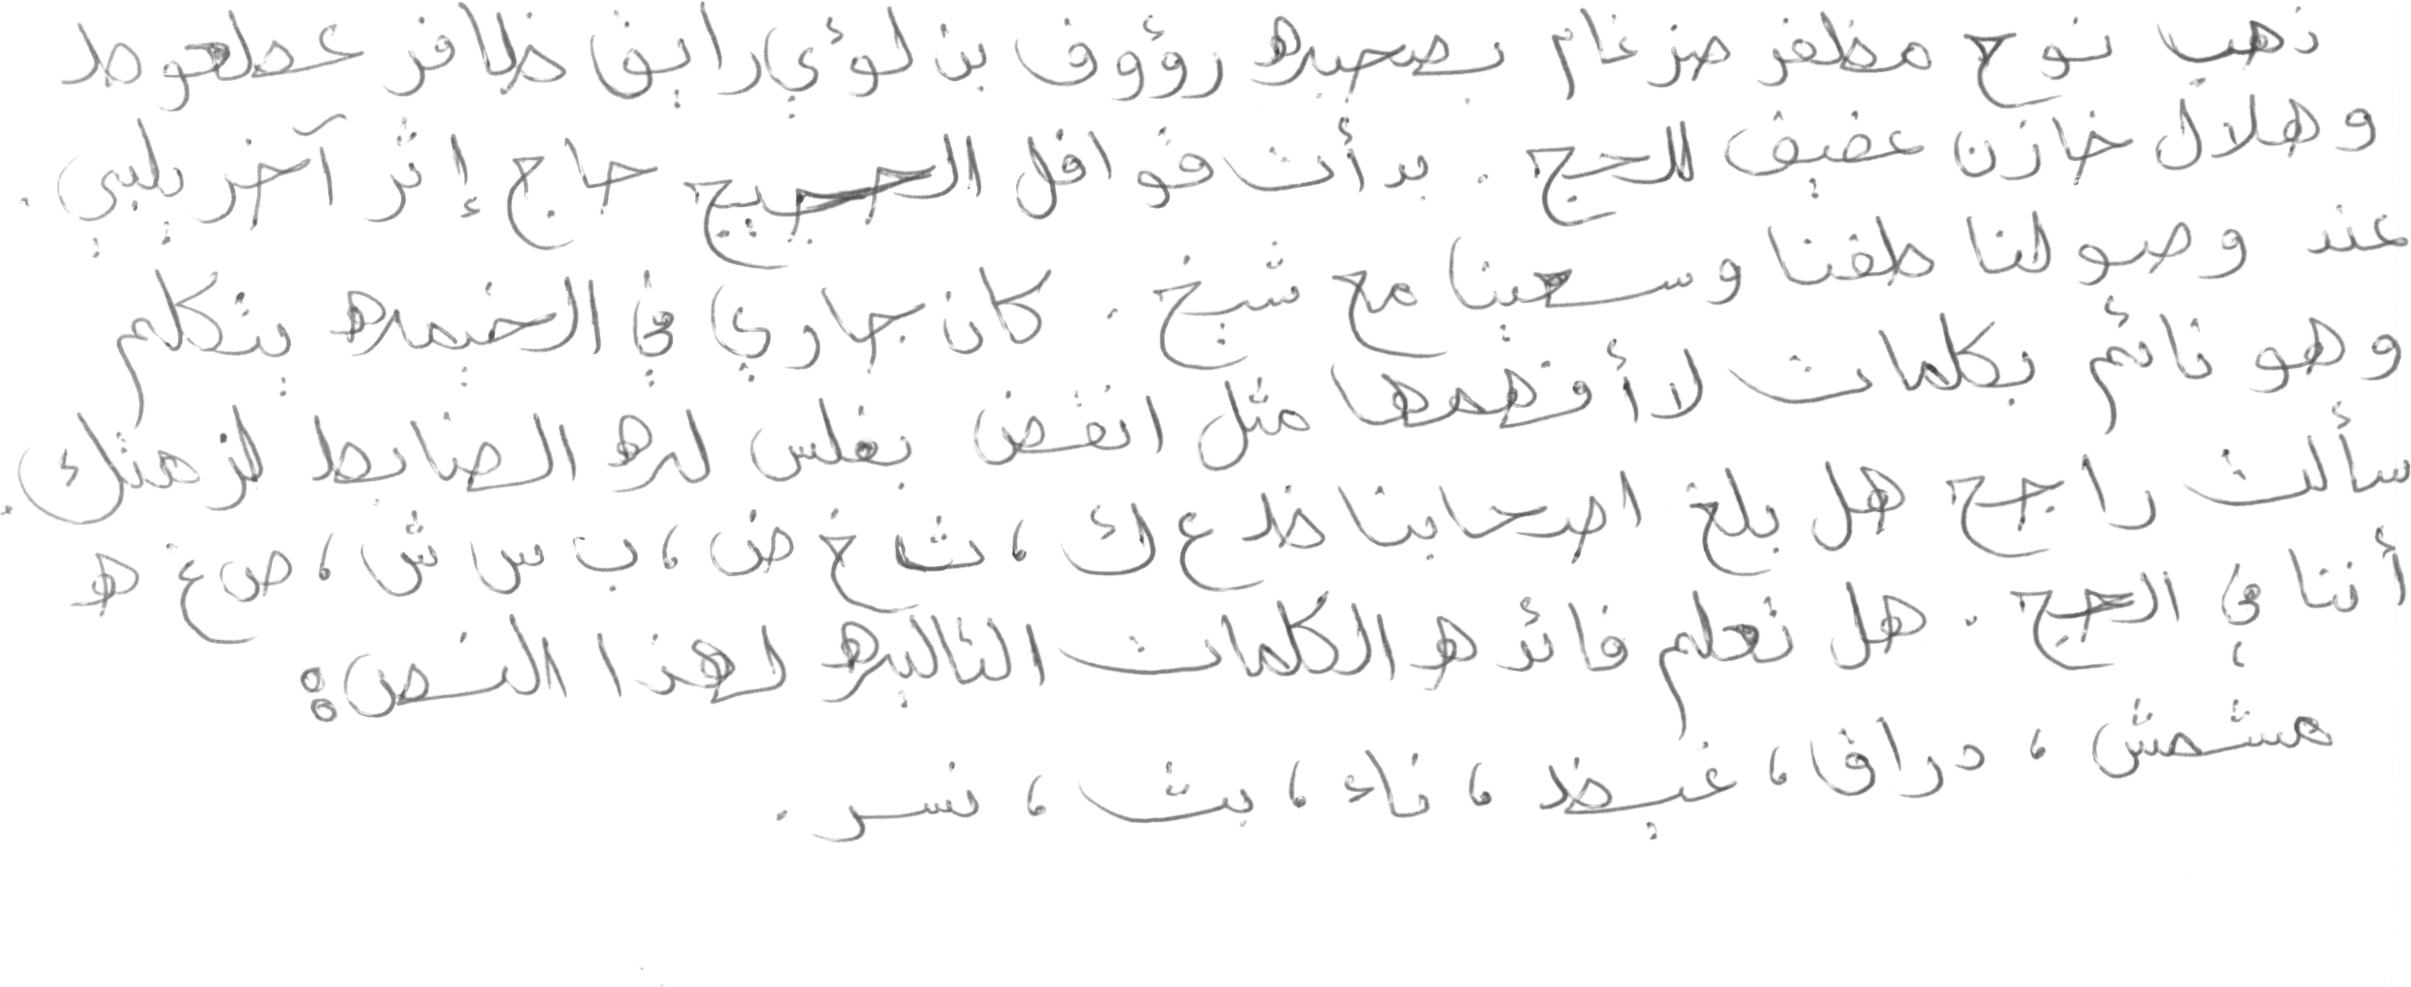 ذهب نوح مظفر ضرغام بصحبه رؤوف بن لؤي رايق ظافر عطعوط
وهلال خازن عفيف للحج . بدأت قوافل الحجيج حاج إثر آخر يلبي .
عند وصولنا طفنا وسعينا مع شيخ . كان جاري في الخيمه يتكلم
وهو نائم بكلمات لا أفهمها مثل انقض بغلس له الضابط لزعتك .
سألت راجح هل بلغ اصحابنا خدع ك ، ث غ ض ، ب س ش ، ص ع ه
أننا في الحج . هل تعلم فائده الكلمات التاليه لهذا النص :
مشمش ، دراق ، غيظ ، ناء ، بث ، نسر .